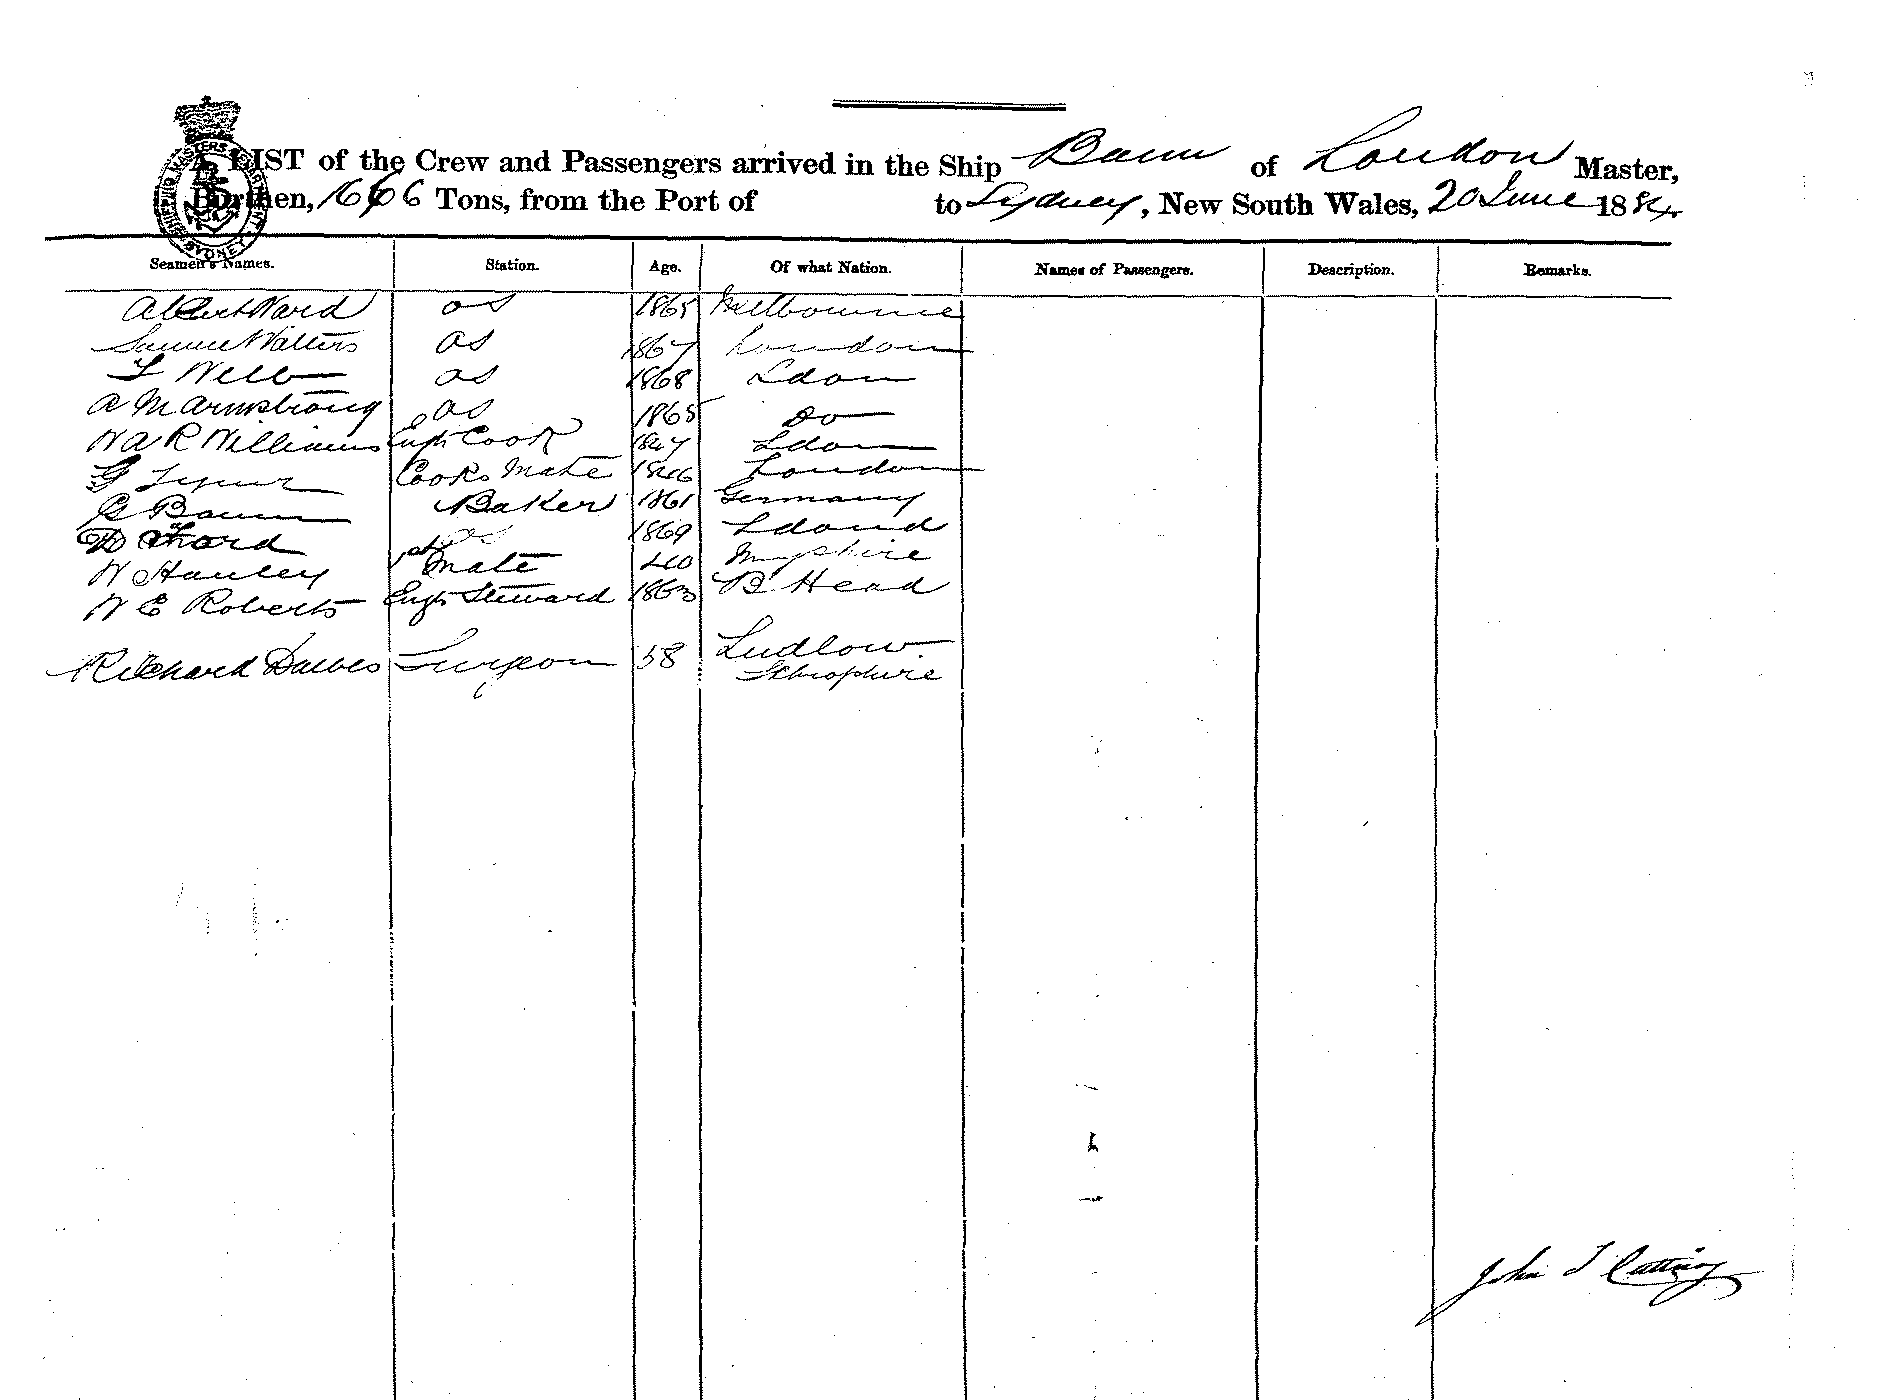 A LIST of the Crew and Passengers arrived in the Ship Bann of London Master,
Burthen, 1666 Tons, from the Port of to Sydney, New South Wales, 20 June 1884
Seamen's Names. Station. Age. Of what Nation. Names of Passengers. Description. Remarks.
Albert Ward OS 1865 Melbourne
Samuel Walters OS 1867 London
OS 1868 Ldon
A M Armstrong OS 1865 Do
W A R Williams Cook 1847 Ldon
G Cooks Mate 1846 London
G Baum Baker 1861 Germany
Ford 1869 Ldond
W Hanley Mate 40
W E Roberts Steward 1863 B Head
Richard Dawes Surgeon 58 Ludlow
Shropshire
John T